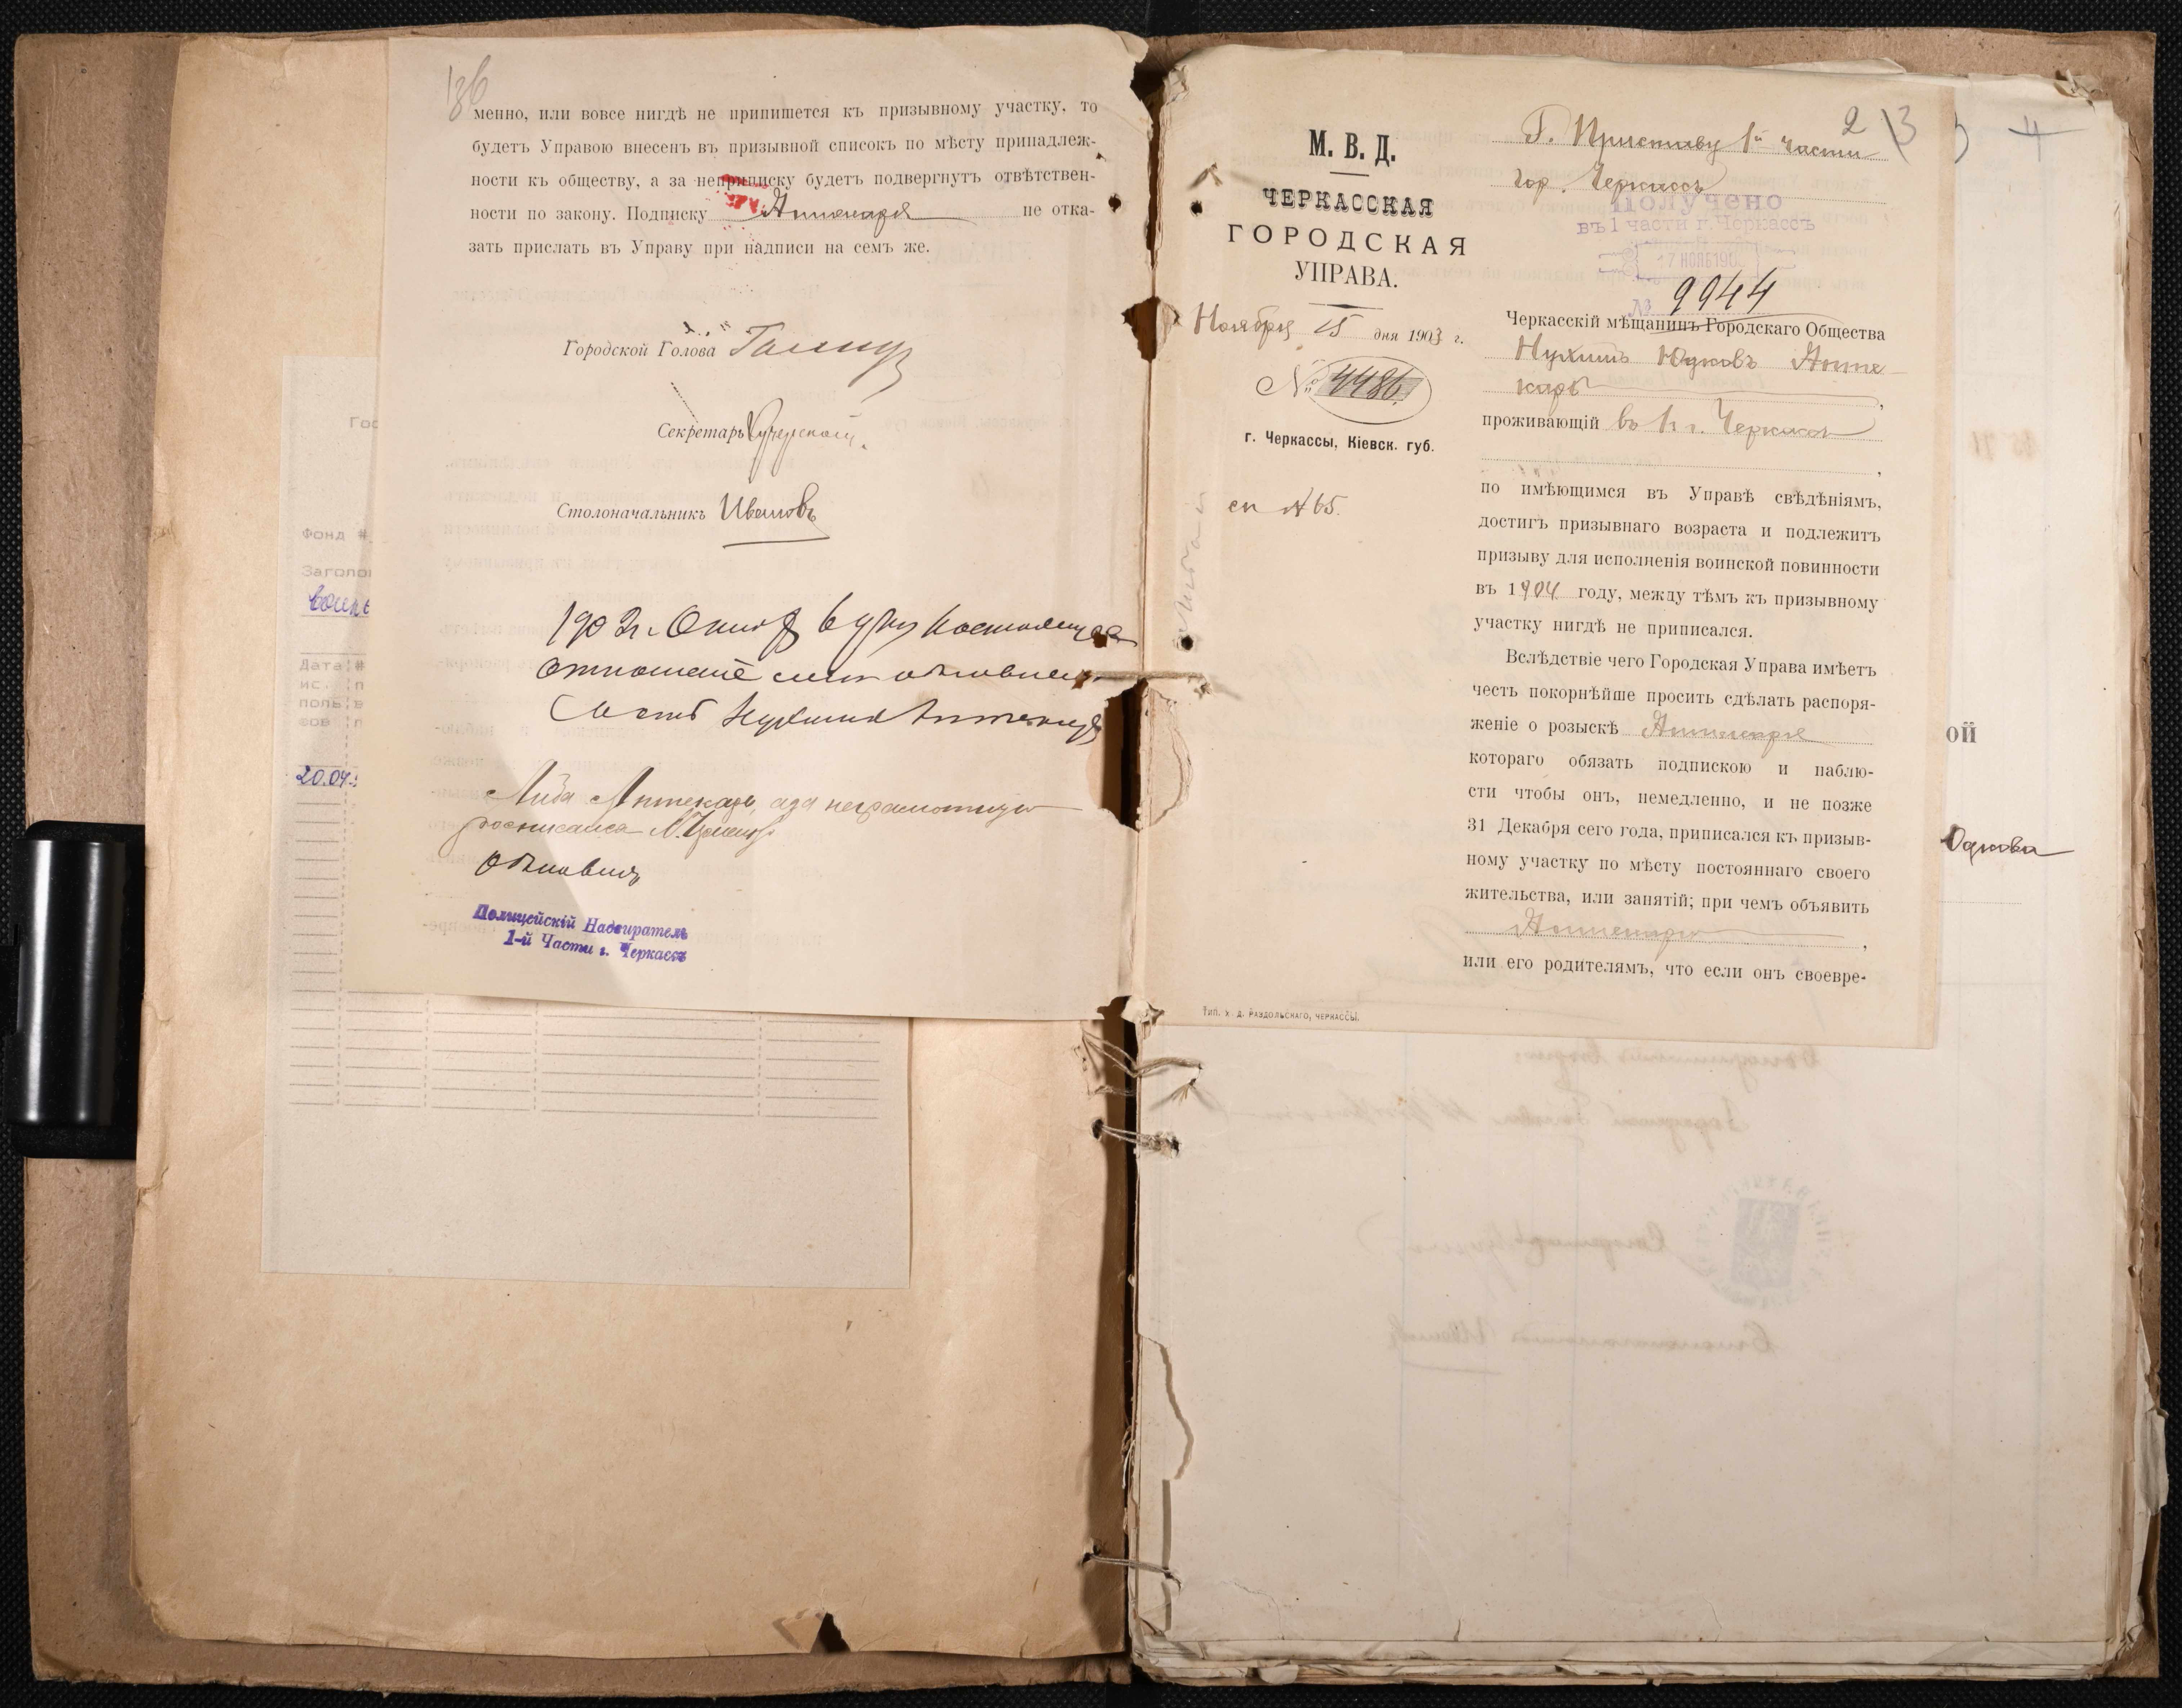 136
менно, или вовсе нигдѣ не припишется къ призывному участку, то
будетъ Управою внесенъ въ призывной списокъ по мѣсту принадлеж-
ности къ обществу, а за неприписку будетъ подвергнутъ отвѣтствен-
ности по закону. Подписку Аптекаря не отка-
зать прислать въ Управу при надписи на семъ же.
Городской Голова
Секретарь
Столоначальникъ Ивановъ
отношеніе мнѣ объявлено
Мать Нухима Аптекаря
Либа Аптекарь, а за неграмотную
росписался
Объявилъ
Полицейскій Надзиратель
1-й Части г. Черкассъ
Гос
Фонд #
Заголо
воен
Дата #
ис. п
поль в
зов п
20.04.
М. В. Д.
ЧЕРКАССКАЯ
ГОРОДСКАЯ
УПРАВА.
Ноября 15 дня 1903 г.
№ 4486
г. Черкассы, Кіевск. губ.
сп № 65.
Тип. Х. Д. Раздольскаго, Черкассы.
2 13
4
Г. Приставу 1й части
гор. Черкассъ
Получено
въ 1 части г. Черкассъ
17 НОЯБ 190
№ 9944
Черкасскій мѣщанинъ Городскаго Общества
Нухимъ Юдковъ Апте-
карь,
проживающій въ г. Черкассы
,
по имѣющимся въ Управѣ свѣдѣніямъ,
достигъ призывнаго возраста и подлежитъ
призыву для исполненія воинской повинности
въ 1904 году, между тѣмъ къ призывному
участку нигдѣ не приписался.
Вслѣдствіе чего Городская Управа имѣетъ
честь покорнѣйше просить сдѣлать распоря-
женіе о розыскѣ Аптекаря
котораго обязать подпискою и наблю-
сти чтобы онъ, немедленно, и не позже
31 Декабря сего года, приписался къ призыв-
ному участку по мѣсту постояннаго своего
жительства, или занятій; при чемъ объявить
Аптекарю,
или его родителямъ, что если онъ своевре-
ОЙ
Юдкова